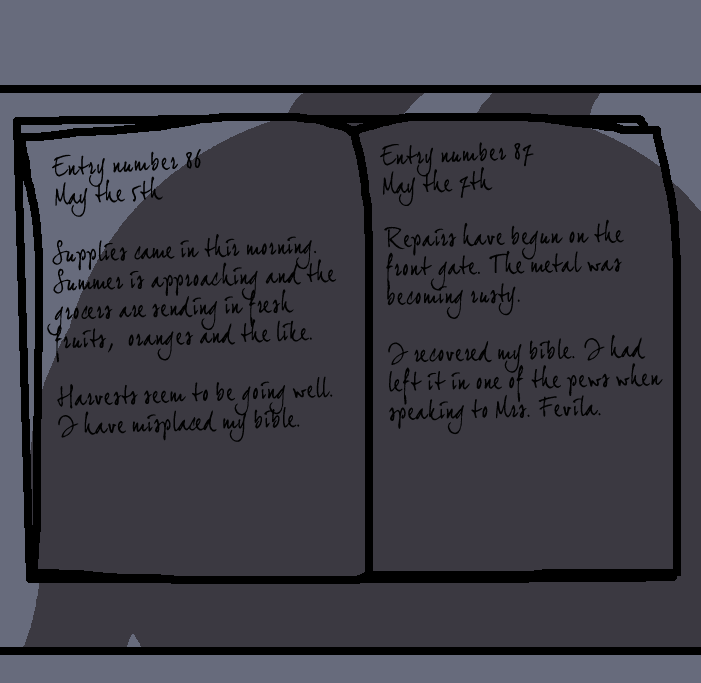 Entry number 86
May the 5th
Supplies came in this morning.
Summer is approaching and the
grocers are sending in fresh
fruits, oranges and the like.
Harvests seem to be going well.
I have misplaced my bible.
Entry number 87
May the 7th
Repairs have begun on the
front gate. The metal was
becoming rusty.
I recovered my bible. I had
left it in one of the pews when
speaking to Mrs. Fevila.